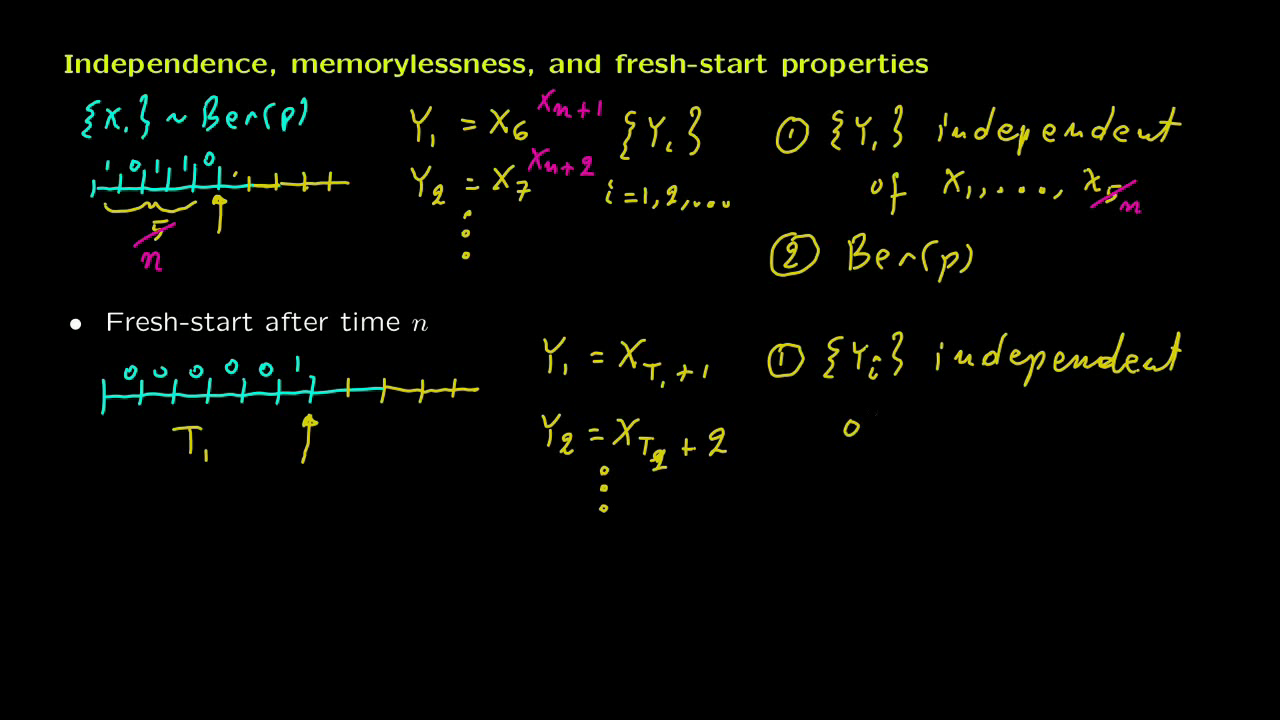 Independence, memorylessness, and fresh-start properties
{X.} ~ Ber(p)
1 0 1 1 0
5
n
Y₁ = X₆ Xₙ₊₁
Y₂ = X₇ Xₙ₊₂
{Yᵢ}
i = 1, 2, ...
① {Yᵢ} independent
of X₁, ..., X₅ n
② Ber(p)
• Fresh-start after time n
0 0 0 0 0 1
T₁
Y₁ = X_{T₁ + 1}
Y₂ = X_{T₂} + 2
① {Yᵢ} independent
o